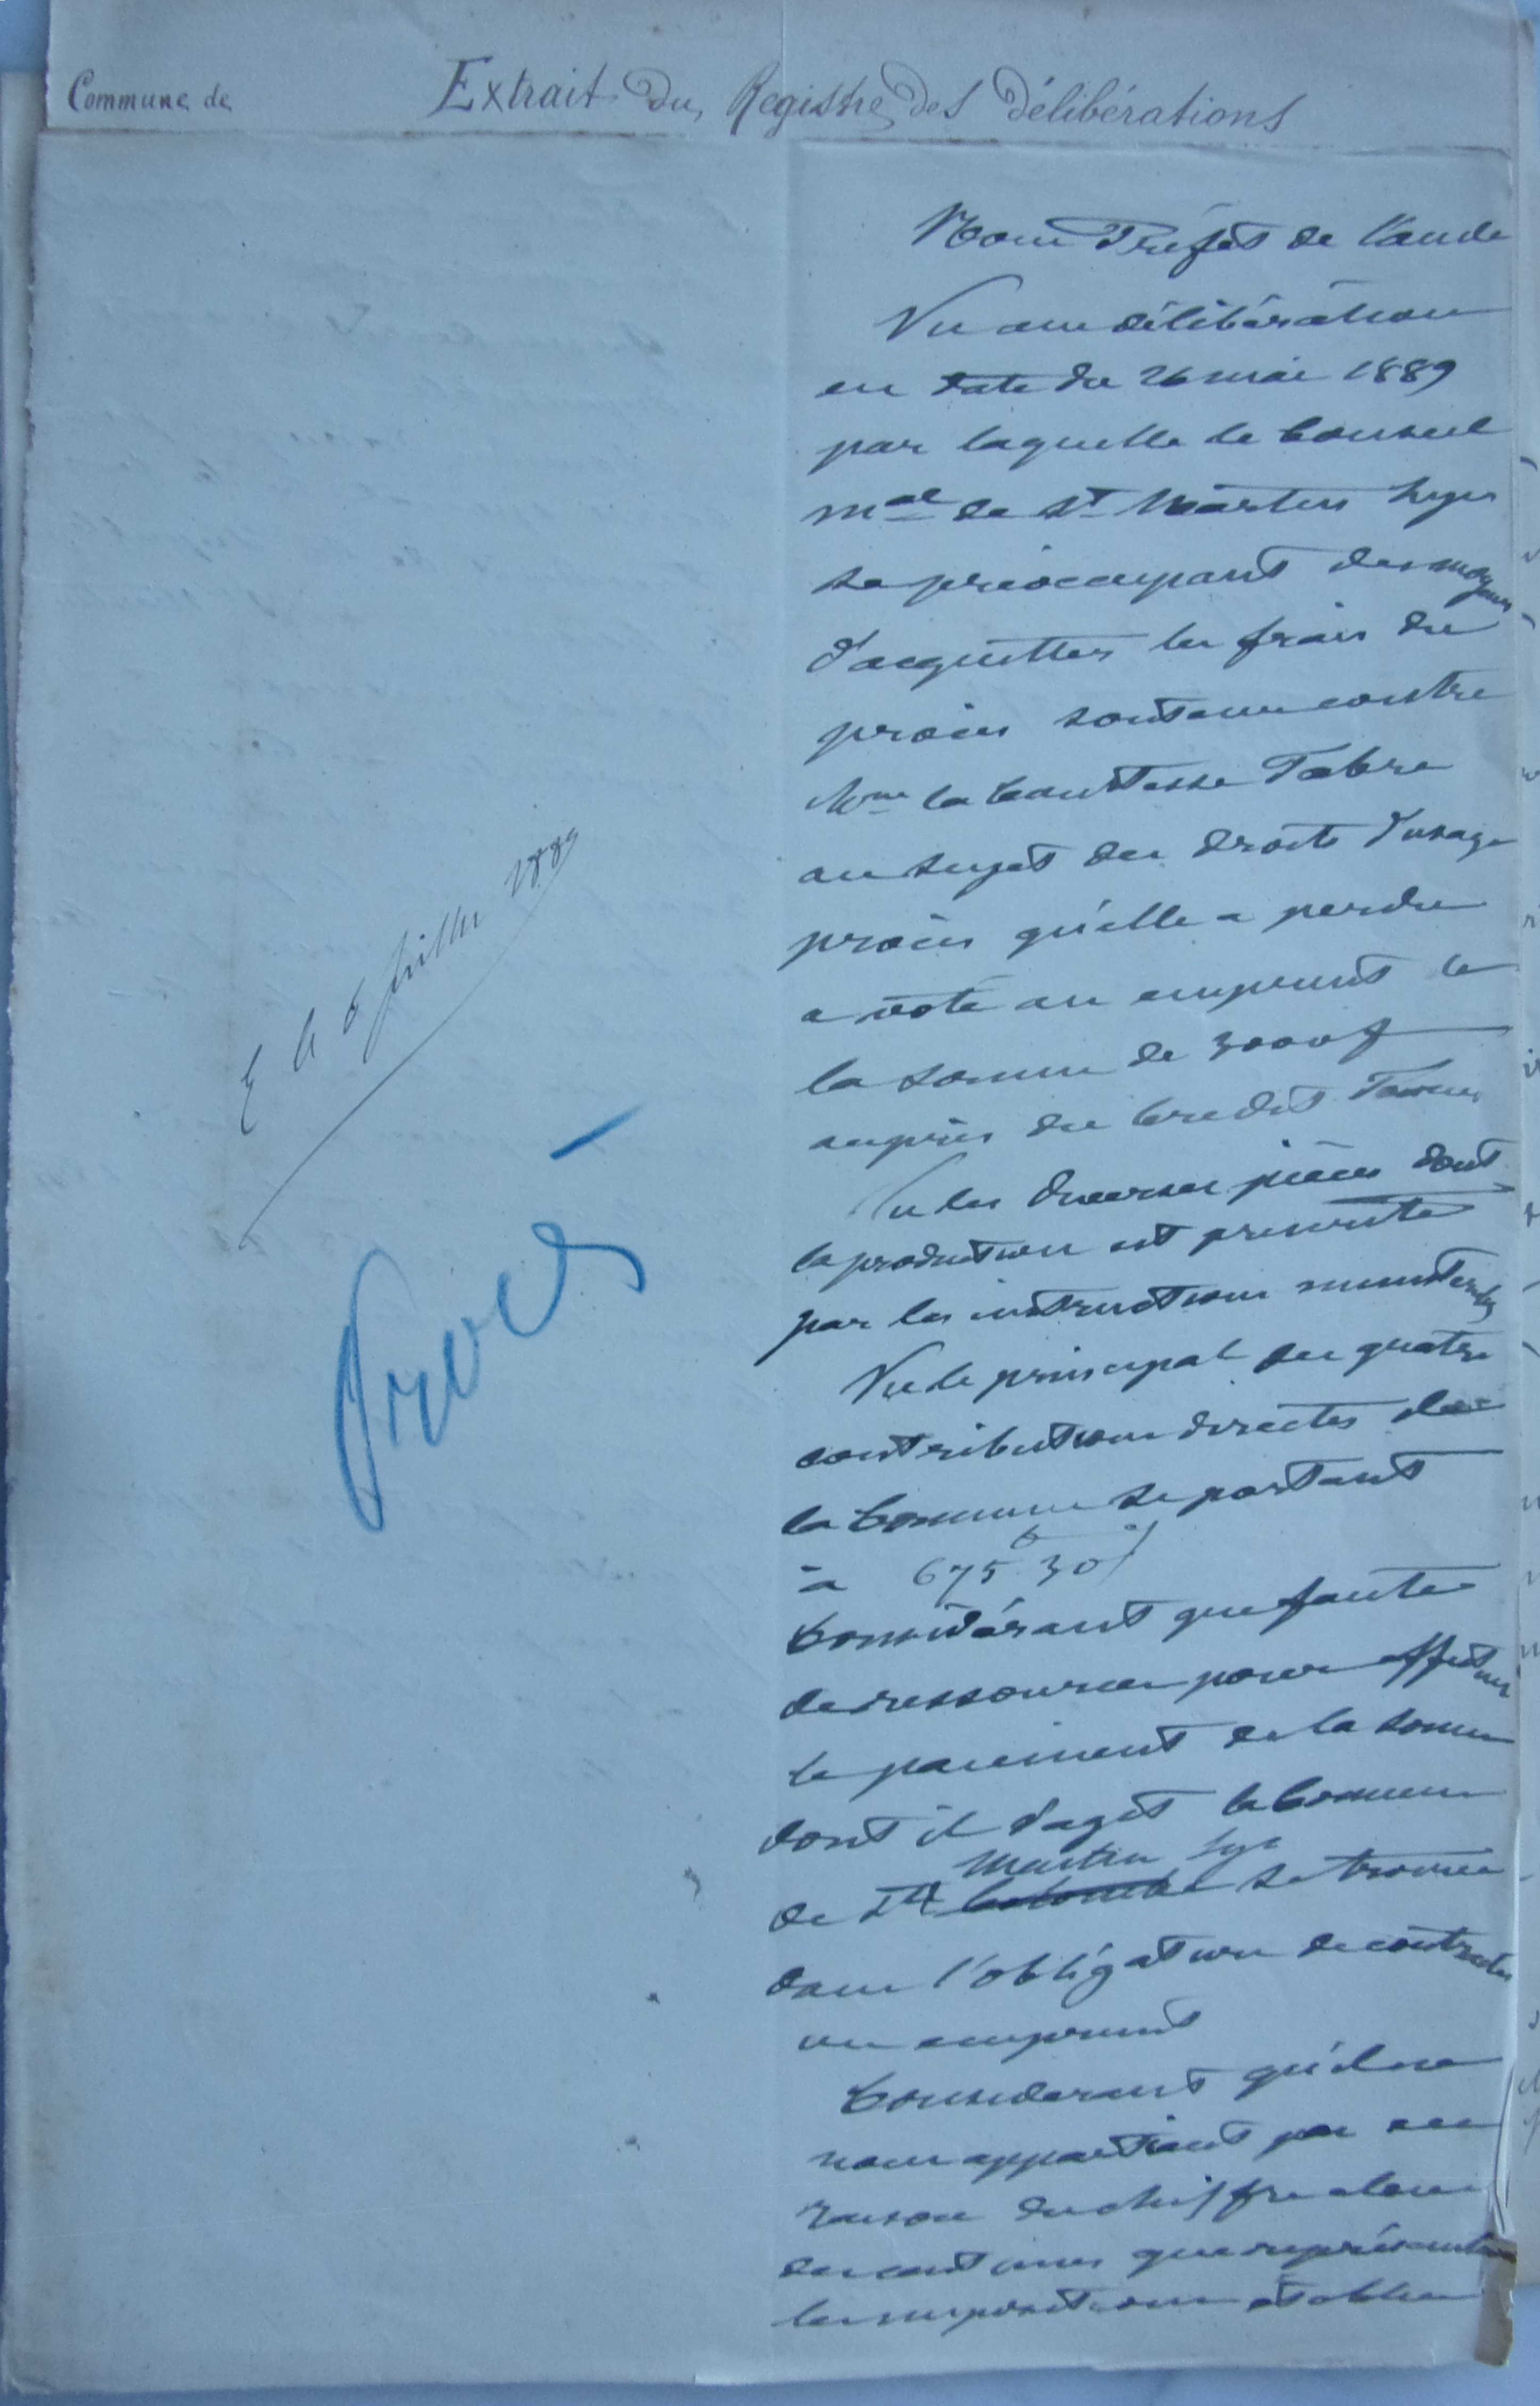 Commune de
Extrait du Registre des délibérations
Nous Préfet de l'aude
Vu une délibération
en date du 26 mai 1889
par laquelle le Conseil
mal de St Martin Lys
se préocupant des moyens
d'acquitter les frais du
procès soutenu contre
Mme la Comtesse Fabre
au sujet des droits d'usage
procès qu'elle a perdu
a voté un emprunt de
la somme de 3000f
auprès du Crédit Foncier
Vu les diverses pièces dont
la production est prescrite
par les instructions ministerielles
Vu le principal des quatre
contributions directes de
la Commune se portant
à 675 f 30
Considérant que faute
de ressources pour effectuer
le paiement de la somme
dont il s'agit la Commune
Martin Lys
de St se trouve
dans l'obligation de contracter
un emprunt
Considerant qu'il ne
nous appartient pas en
raison du chiffre élevé
des centimes que représentent
les impositions établies
E le 6 juillet 1889
Procès